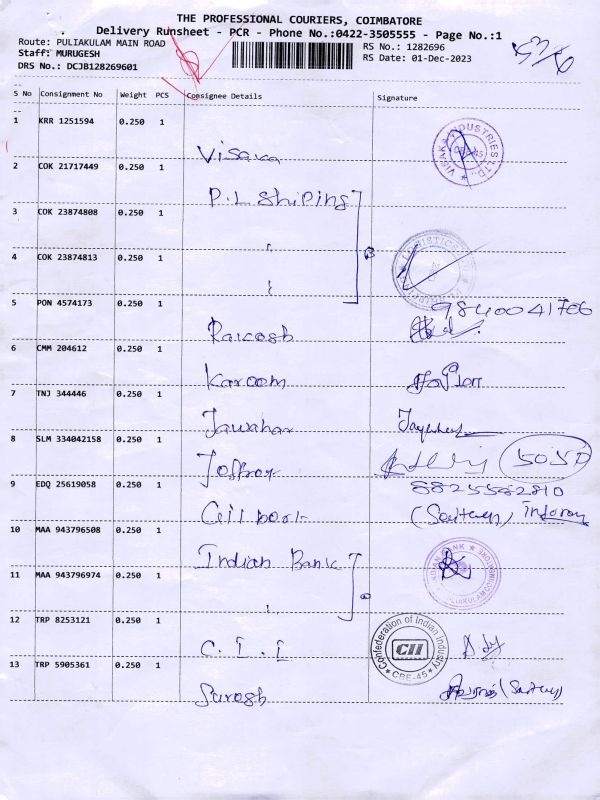 THE PROFESSIONAL COURIERS, COIMBATORE
Delivery Runsheet - PCR - Phone No.:0422-3505555 - Page No.:1
Route: PULIAKULAM MAIN ROAD RS No.: 1282696
Staff: MURUGESH RS Date: 01-Dec-2023
DRS No.: DCJB128269601
S No Consignment No Weight PCS Consignee Details Signature
1 KRR 1251594 0.250 1
Visaka VISAKA INDUSTRIES LTD.
2 COK 21717449 0.250 1
P.L Shiping
3 COK 23874808 0.250 1
"
4 COK 23874813 0.250 1
" 3 LOGISTICS
5 PON 4574173 0.250 1 9840041706
6 CMM 204612 0.250 1
Kareem
7 TNJ 344446 0.250 1
Jawahar
8 SLM 334042158 0.250 1
5050
9 EDQ 25619058 0.250 1 8825582810
(Security)
10 MAA 943796508 0.250 1
Indian Bank INDIAN BANK
11 MAA 943796974 0.250 1
" 2
12 TRP 8253121 0.250 1
C.I.I Confederation of Indian Industry CII CBE-45
13 TRP 5905361 0.250 1
Suresh (Security)